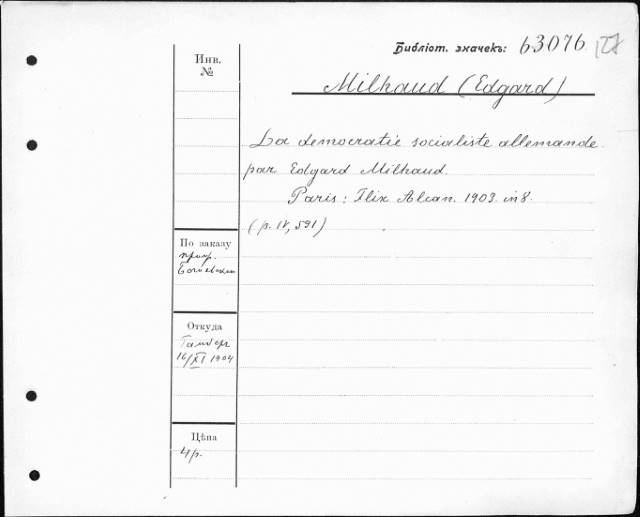 Библіот. значекъ: 63076 127
Инв.
№
Milhaud (Edgard)
La democratie socialiste allemande.
par Edgard Milhaud.
Paris: Flix Alcan. 1903. in 8.
(p. IV, 591)
По заказу
проф.
Откуда
16/XI 1904
Цѣна
4 р.